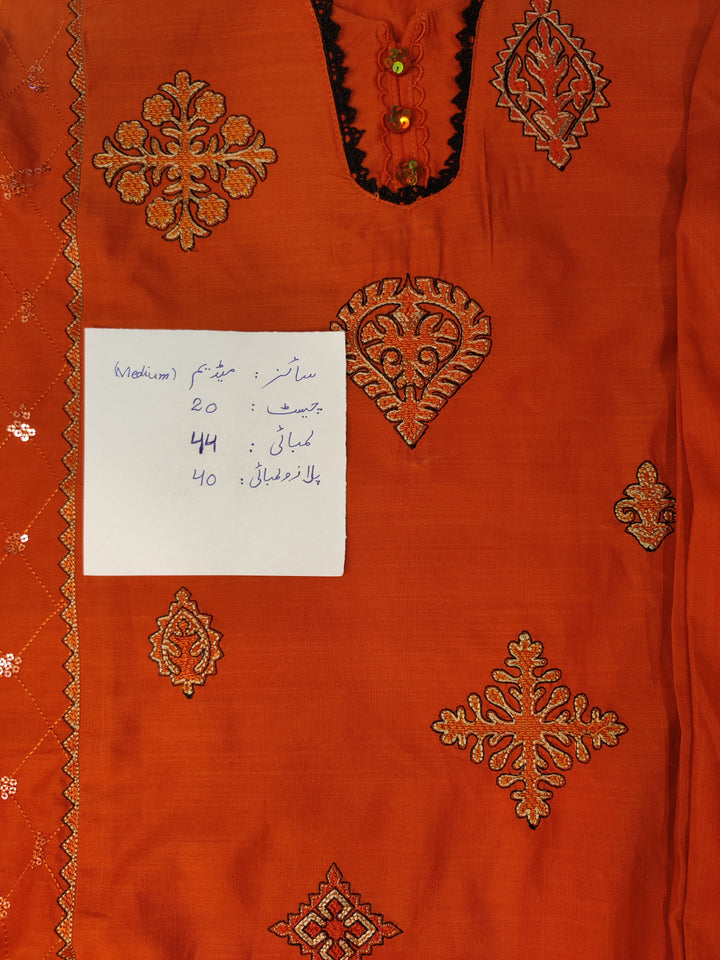 سائز: میڈیم (Medium)
چیسٹ: 20
لمبائی: 44
پلازو لمبائی: 40